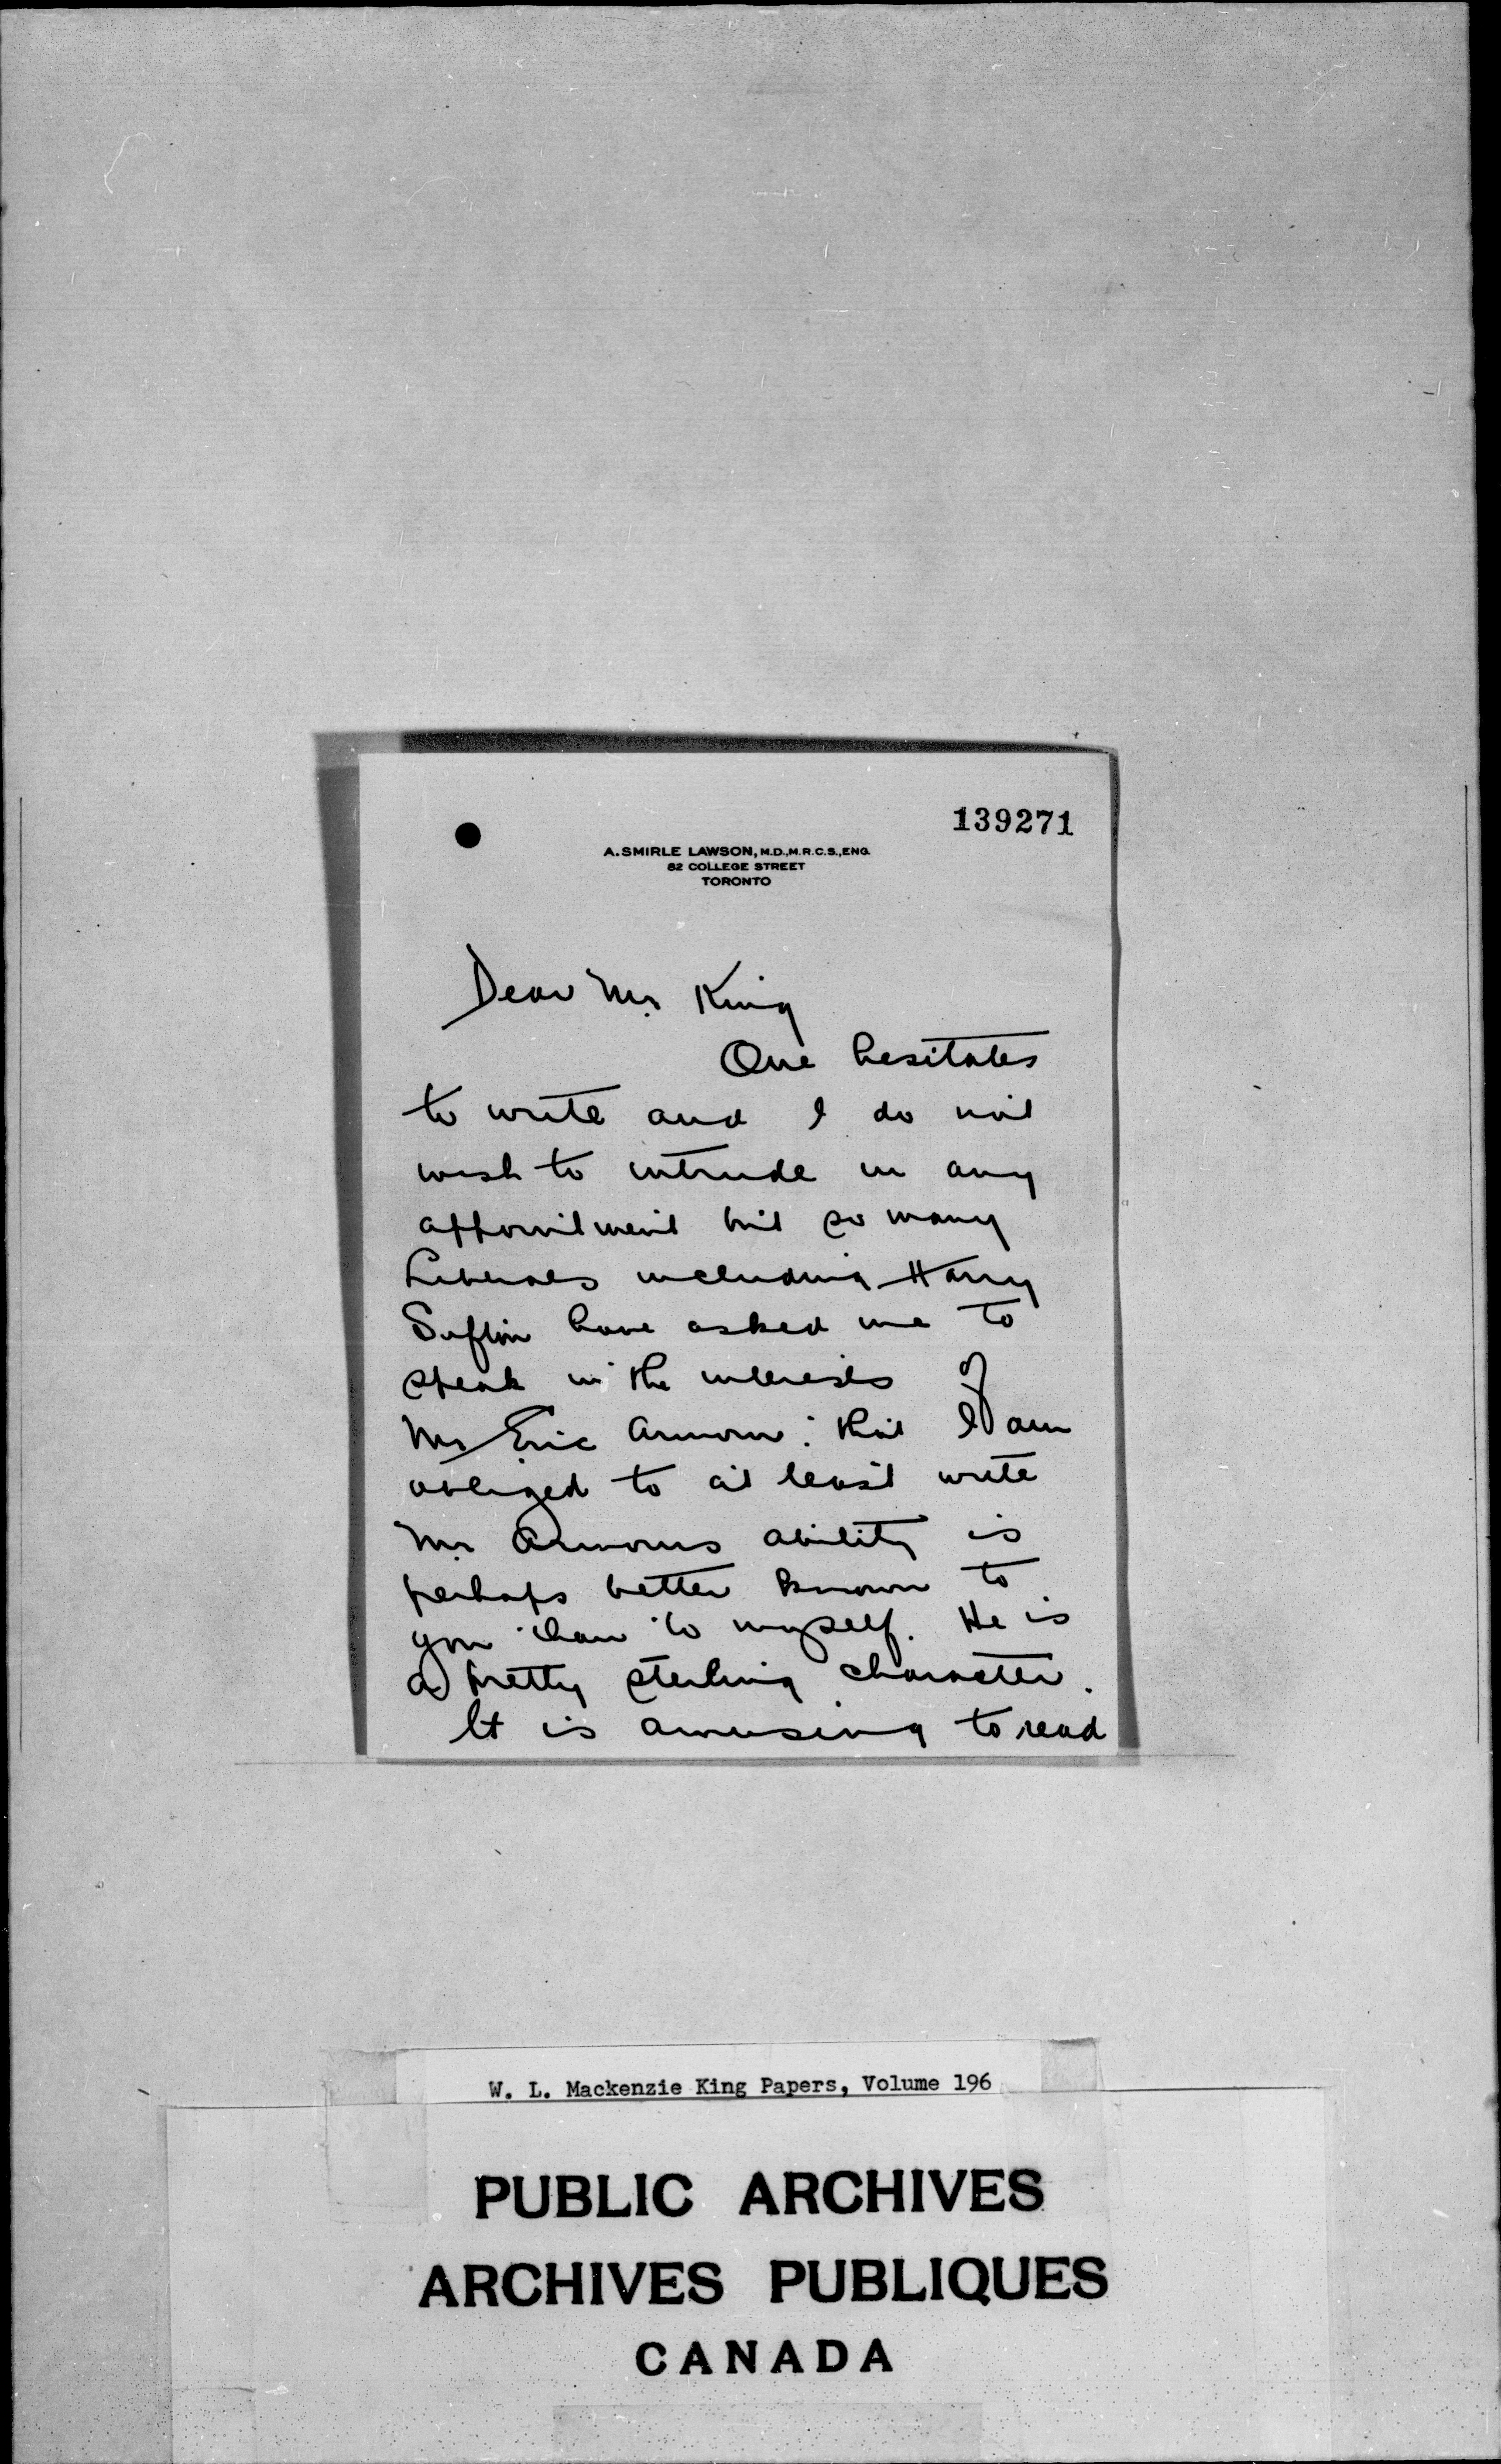 139271
A. SMIRLE LAWSON, M.D., M.R.C.S., ENG.
82 COLLEGE STREET
TORONTO
Dear Mr. King
One hesitates
to write and I do not
wish to intrude in any
appointment but so many
Liberals including Harry
have asked me to
speak in the interests of
Mr Eric Armour: that I am
obliged to at least write
Mr Armours ability is
perhaps better known to
you than to myself. He is
a pretty sterling character.
It is amusing to read
W. L. Mackenzie King Papers, Volume 196
PUBLIC ARCHIVES
ARCHIVES PUBLIQUES
CANADA